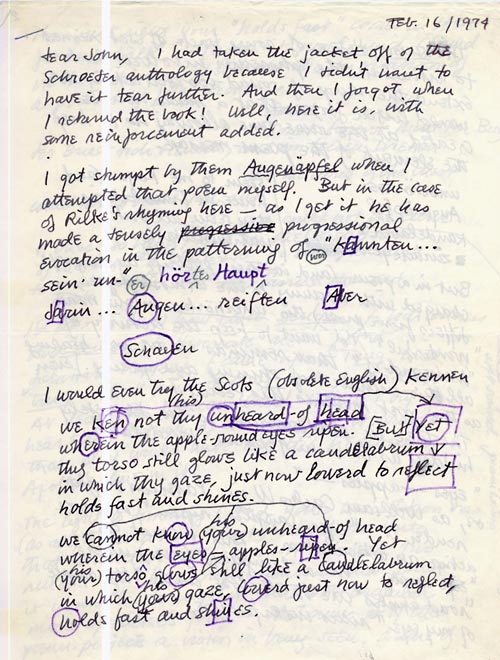 Feb. 16/1974
Dear John, I had taken the jacket off of the
Schroeder anthology because I didn't want to
have it tear further. And then I forgot when
I returnd the book! Well, here it is, with
some reinforcement added.
I got stumpt by them Augenäpfel when I
attempted that poem myself. But in the case
of Rilke's rhyming here — as I get it he has
made a tensely progressive progressional
evocation in the patterning of (wir) "kannten...
sein' un-" (Er) hörtes Haupt
darin... Augen... reiften Aber
Schauen
I would even try the Scots (obsolete English) kennen
(his)
we ken not thy unheard-of head
wherein the apple-round eyes ripen. [But] Yet
thy torso still glows like a candelabrum
in which thy gaze, just now lowerd to reflect
holds fast and shines.
his
we cannot know (your) unheard-of head
wherein the eyes-apples ripen. Yet
his
(your) torso glows still like a candelabrum
his
in which (your) gaze, lowerd just now to reflect,
holds fast and shines.